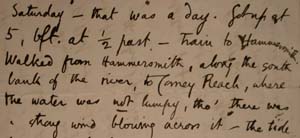 Saturday – that was a day. Got up at
5, bft. at ½ past – train to Hammersmith
Walked from Hammersmith, along the south
bank of the river, to Corney Reach, where
the water was not lumpy, tho' there was
a strong wind blowing across it – the tide